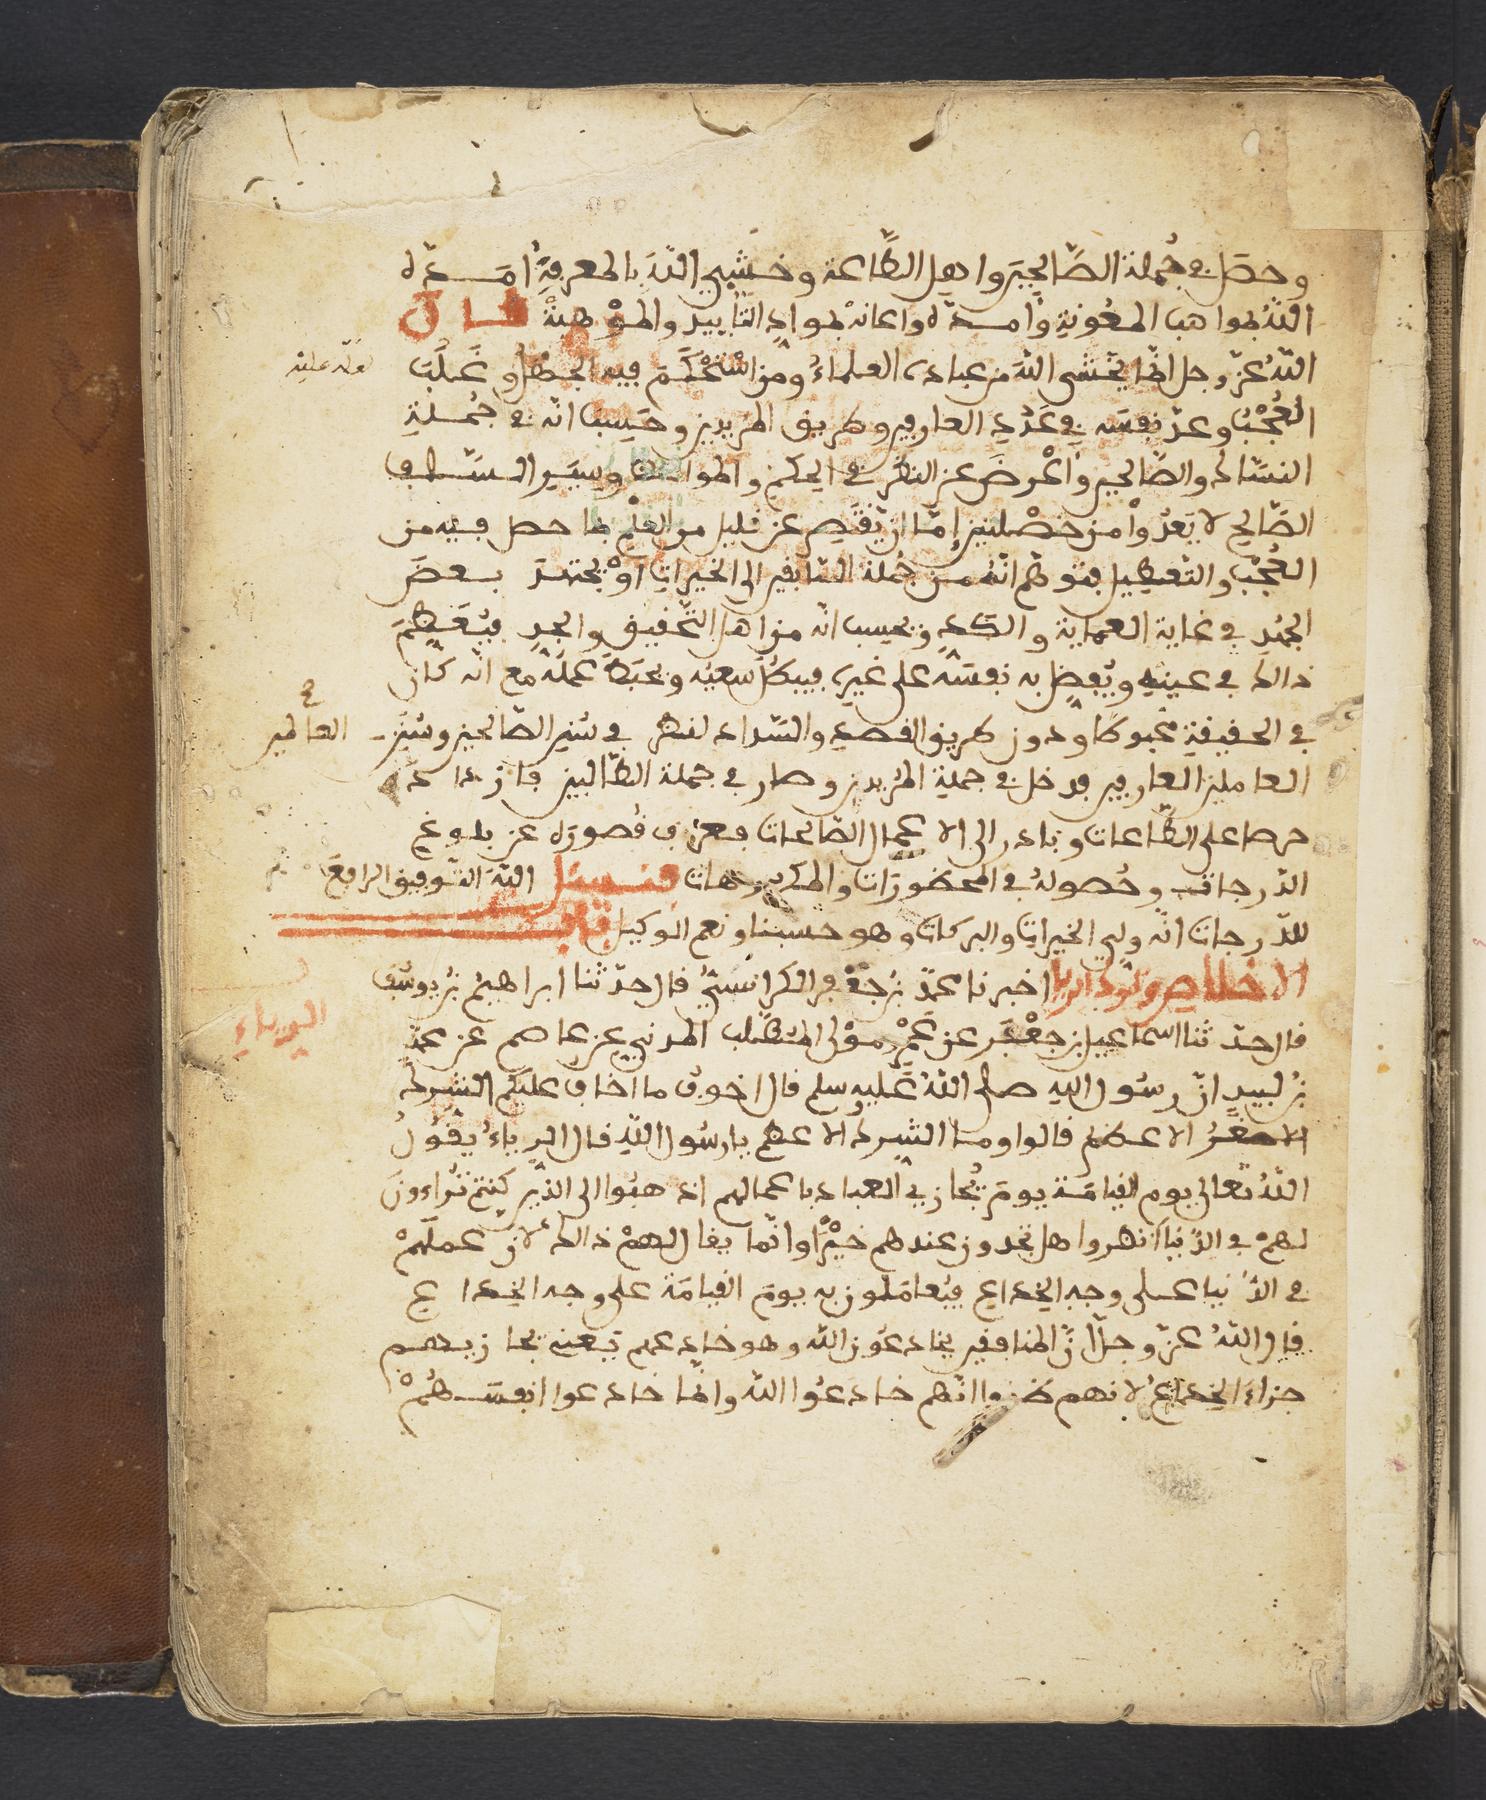 وحصل في جُملة الصّالحين واهل الطّاعة وخشي اللّه بالمعرفةُ امَــدّه
اللّهُ بمواهب المعُونةِ وأمــدّه واعانه بموادِ التّأييد والموهبةْ قــال
اللّهُ عزّ وجل انما يخشى اللّه من عباده العلماءُ ومن اسْتحْكَمَ فيه الجهْلُ وغَلَبَ
العُجْبُ وعدّ نفسَه في عَدَدِ العارفين وطريق المريدين وحَسِبَ انّه في جُملةِ
النسّاك والصّالحين وأعْرضَ عن النظر في الحكم والمواعظ وسِيَرِ السَّلف
الصّالح لا يَعْدُوا من خصْلتين إمّا ان يُقَصِر عن قليل من العلم بما حصل فيه من
العُجْب والتّعطيل فتوهّم انّهُ من جُملة السّابقين الى الخيراتِ أوْ يجتهدَ بعضَ
الجُهْدِ في غاية العماية والكدِ ويحسِب انّه من اهل التّحقيق والجدِ فيُعَظِمَ
ذالك في عينهِ ويُفضِل به نفسَه على غيرِه فيبطُلَ سعيُه ويحبَطَ عملُه مع انّه كان
في الحقيقةِ محبوطًا ودون طريق القصدِ والسّداد لنظر في سُنن الصّالحين وسُنن
العاملين العارفين فدخل في جملةِ المُريدين وصار في جملة الطّالبين فازداد
حرصا على الطّاعات وبادر الى الاعمال الصّالحات فعرف قصورَه عن بلوغ
الدّرجات وحُصولهُ في المحضورَات والمكروهات فنسئل اللّهَ التّوفيق الرافعَ
للدّرجات انّه وليّ الخيراتِ والبركات وهو حسبنا ونعم الوكيل باب
الاخلاص وترك الريا اخبرنا محمّد بنُ جَعْفر الكرابيسيُّ قال حدّثنا ابراهيمُ بنُ يوسُف
قال حدّثنا اسماعيل بن جعْفر عن عَمْرٍو موْلى المُطّلب المدنيِ عن عاصم عن محمّد
بنُ لبيدٍ انّ رسُول اللهِ صلى اللّهُ عَليهِ وسلم قال اخوفُ ما اخاف عليكُم الشرك
الاصغرُ الاعظم قالوا وما الشركُ الاعظم يا رسُول اللّهِ قال الرياءُ يقُولُ
اللّهُ تعالى يوم القيامَة يومَ يُجازي العباد باعمالهم اذهبُوا الى الذين كنتمْ تُراءونَ
لهمْ في الدّنيا انظروا هل تجدون عندهم خيْرًا وانّما يقال لهمْ ذالك لانّ عملَهمْ
في الدُّنيا على وجه الخداعِ فيُعامَلون به يومَ القيامَة على وجه الخِداع
قال اللّهُ عزّ وجلّ انّ المنافقين يخادعُون اللّه وهو خادعهم يَعنى يجازيهم
جزاءَ الخداعِ لانهم ظنوا انّهم خادعُوا اللّه وانّما خادعوا انفسَهُمْ
العالمين
الرياءِ